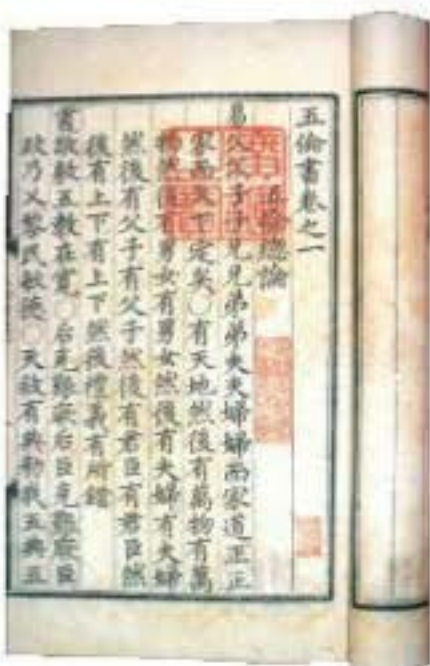 五倫書卷之一
五倫總論
易父父子子兄兄弟弟夫夫婦婦而家道正正
家而天下定矣〇有天地然後有萬物有萬
物然後有男女有男女然後有夫婦有夫婦
然後有父子有父子然後有君臣有君臣然
後有上下有上下然後禮義有所錯
書敬敷五教在寬〇后克艱厥后臣克艱厥臣
政乃乂黎民敏德〇天敘有典勑我五典五